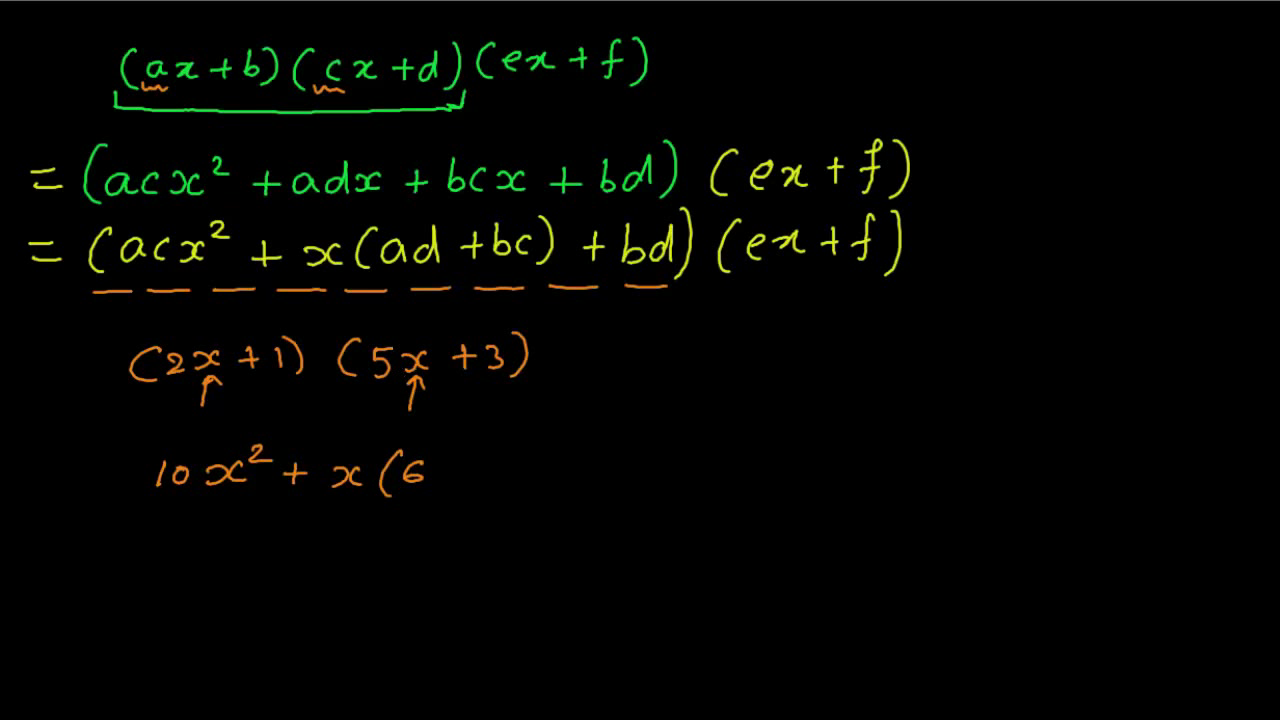 (ax+b)(cx+d)(ex+f)
= (acx² + adx + bcx + bd) (ex + f)
= (acx² + x(ad + bc) + bd) (ex + f)
(2x + 1) (5x + 3)
10x² + x(6